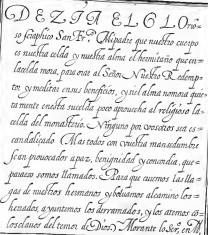 DEZIA EL GLOrio
so Seraphico San Frco. Mi padre que nuestro cuerpo
es nuestra celda, y nuestra alma el hermitaño que en
la celda mora, para orar al Señor Nuestro Redemp
tor, y meditar en sus beneficios, y si el alma no mora quie
tamente en esta su celda, poco aprouecha al religioso la ce
lda del monasterio. Ninguno por vosotros sea es
candaliçado Mas todos con vuestra mansedumbre
Sean prouocados a paz, benignidad y concordia, que
para esso somos llamados. Para que curemos las lla
gas de nuestros hermanos y boluamos al camino los
tienados, ayuntemos los derramados, y los atemos cō
los clauos del temor de Dios. Morante lo Scr, en M